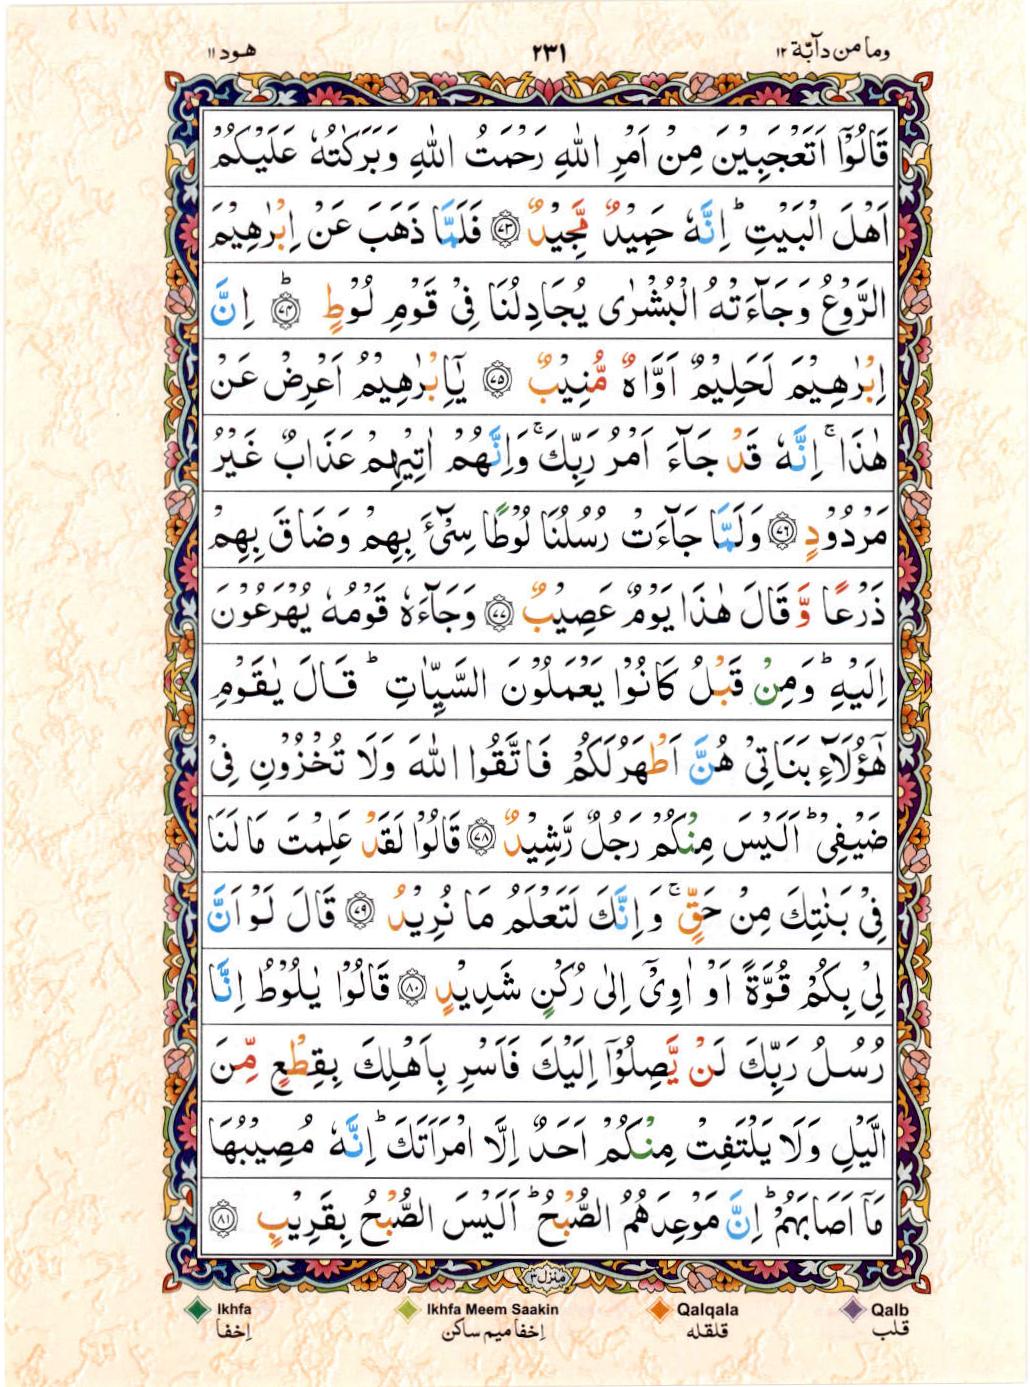 وما من دآبّة ۱۲
۲۳۱
هود ۱۱
قَالُوْۤا اَتَعْجَبِيْنَ مِنْ اَمْرِ اللّٰهِ رَحْمَتُ اللّٰهِ وَبَرَكٰتُهٗ عَلَيْكُمْ
اَهْلَ الْبَيْتِ ؕ اِنَّهٗ حَمِيْدٌ مَّجِيْدٌ ۝۷۳ فَلَمَّا ذَهَبَ عَنْ اِبْرٰهِيْمَ
الرَّوْعُ وَجَآءَتْهُ الْبُشْرٰى يُجَادِلُنَا فِيْ قَوْمِ لُوْطٍ ؕ۝۷۴ اِنَّ
اِبْرٰهِيْمَ لَحَلِيْمٌ اَوَّاهٌ مُّنِيْبٌ ۝۷۵ يٰۤاِبْرٰهِيْمُ اَعْرِضْ عَنْ
هٰذَا ۚ اِنَّهٗ قَدْ جَآءَ اَمْرُ رَبِّكَ ۚ وَاِنَّهُمْ اٰتِيْهِمْ عَذَابٌ غَيْرُ
مَرْدُوْدٍ ۝۷۶ وَلَمَّا جَآءَتْ رُسُلُنَا لُوْطًا سِيْٓءَ بِهِمْ وَضَاقَ بِهِمْ
ذَرْعًا وَّ قَالَ هٰذَا يَوْمٌ عَصِيْبٌ ۝۷۷ وَجَآءَهٗ قَوْمُهٗ يُهْرَعُوْنَ
اِلَيْهِ ؕ وَمِنْ قَبْلُ كَانُوْا يَعْمَلُوْنَ السَّيِّاٰتِ ؕ قَالَ يٰقَوْمِ
هٰۤؤُلَآءِ بَنَاتِيْ هُنَّ اَطْهَرُ لَكُمْ فَاتَّقُوا اللّٰهَ وَلَا تُخْزُوْنِ فِيْ
ضَيْفِيْ ؕ اَلَيْسَ مِنْكُمْ رَجُلٌ رَّشِيْدٌ ۝۷۸ قَالُوْا لَقَدْ عَلِمْتَ مَا لَنَا
فِيْ بَنٰتِكَ مِنْ حَقٍّ ۚ وَاِنَّكَ لَتَعْلَمُ مَا نُرِيْدُ ۝۷۹ قَالَ لَوْ اَنَّ
لِيْ بِكُمْ قُوَّةً اَوْ اٰوِيْۤ اِلٰى رُكْنٍ شَدِيْدٍ ۝۸۰ قَالُوْا يٰلُوْطُ اِنَّا
رُسُلُ رَبِّكَ لَنْ يَّصِلُوْۤا اِلَيْكَ فَاَسْرِ بِاَهْلِكَ بِقِطْعٍ مِّنَ
الَّيْلِ وَلَا يَلْتَفِتْ مِنْكُمْ اَحَدٌ اِلَّا امْرَاَتَكَ ؕ اِنَّهٗ مُصِيْبُهَا
مَاۤ اَصَابَهُمْ ؕ اِنَّ مَوْعِدَهُمُ الصُّبْحُ ؕ اَلَيْسَ الصُّبْحُ بِقَرِيْبٍ ۝۸۱
منزل ۳
Ikhfa Ikhfa Meem Saakin Qalqala Qalb
إخفا إخفا ميم ساكن قلقله قلب